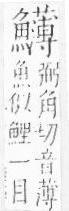 弼角切音薄
魚似鯉一目